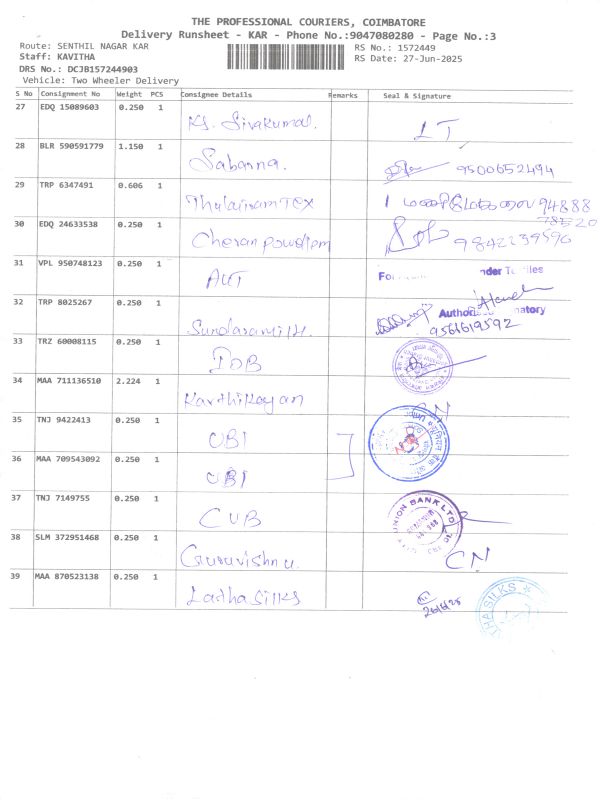 THE PROFESSIONAL COURIERS, COIMBATORE
Delivery Runsheet - KAR - Phone No.:9047080280 - Page No.:3
Route: SENTHIL NAGAR KAR
Staff: KAVITHA
DRS No.: DCJB157244903
Vehicle: Two Wheeler Delivery
RS No.: 1572449
RS Date: 27-Jun-2025
S No Consignment No Weight PCS Consignee Details Remarks Seal & Signature
27 EDQ 15089603 0.250 1 Sivakumar.
28 BLR 590591779 1.150 1 Sabarna. 9500652494
29 TRP 6347491 0.606 1 Thulairam TEX 94888
30 EDQ 24633538 0.250 1 Cheran 9842239596
31 VPL 950748123 0.250 1
32 TRP 8025267 0.250 1 9566619592
33 TRZ 60008115 0.250 1 IOB
34 MAA 711136510 2.224 1 Karthikeyan CN
35 TNJ 9422413 0.250 1 UBI
36 MAA 709543092 0.250 1 UBI
37 TNJ 7149755 0.250 1 CUB UNION BANK LTD
38 SLM 372951468 0.250 1 Guruvishnu. CN
39 MAA 870523138 0.250 1 Ladha Silks